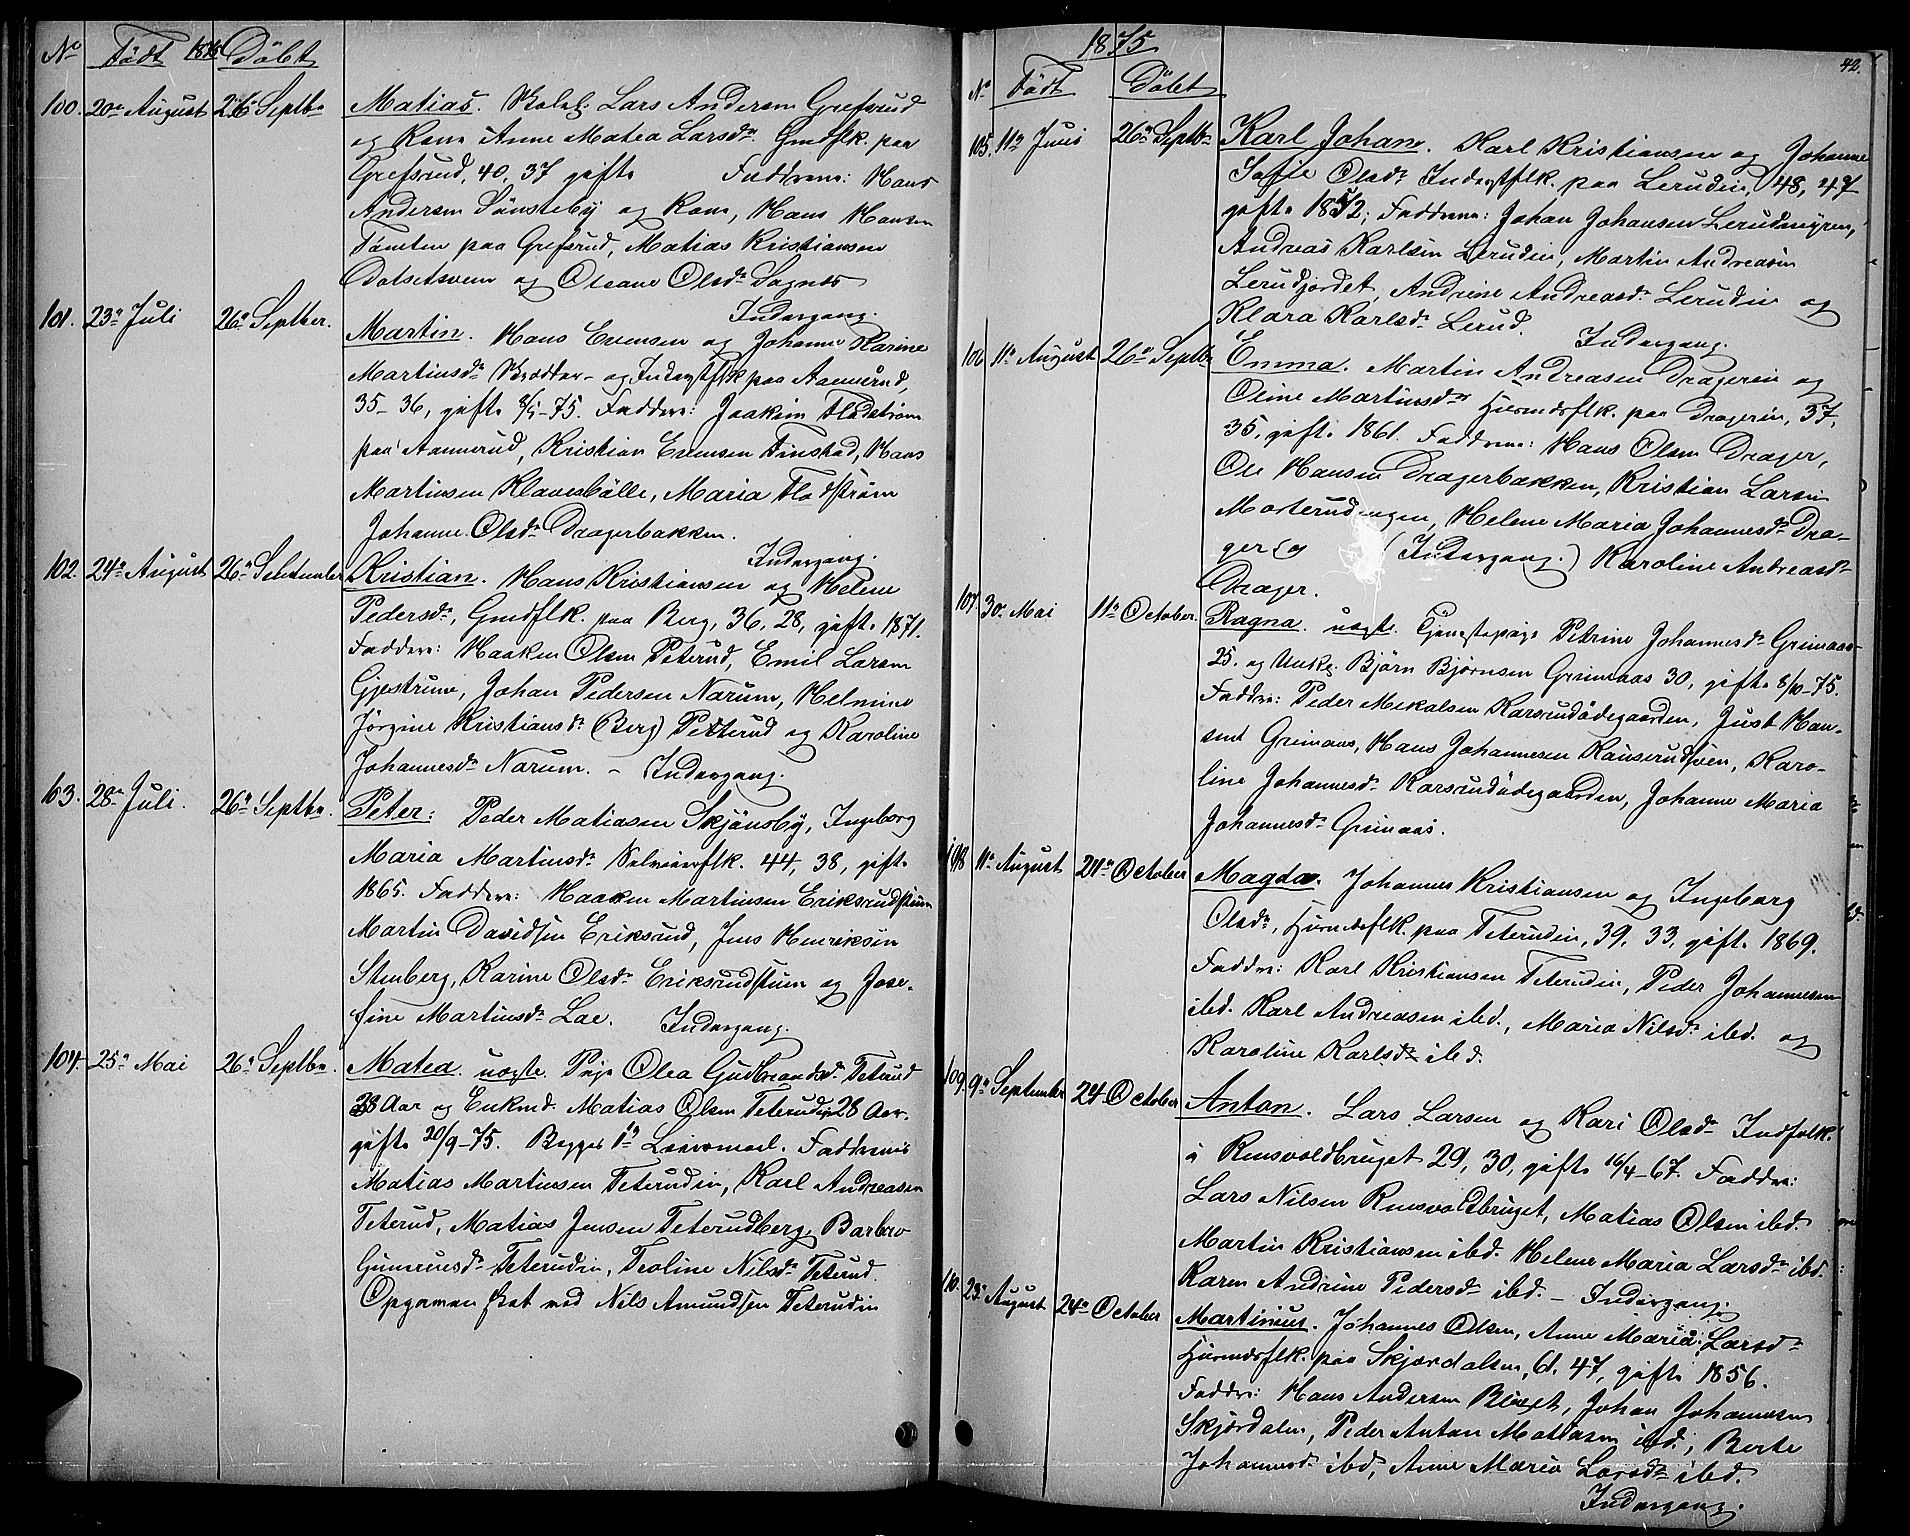 No Födt 1875 Döbt
100. 20de August 26 Septbr
Matias. Lars Andersen Grefsrud
og Kone Anne Matea Larsdr. Gmdflk. paa
Grefsrud, 40, 37 gifte Faddrene: Hans
Andersen Sönsteby og Kone, Hans Hansen
Tomten paa Grefsrud, Matias Kristiansen
og Oleane Olsdr Sognes
Indgang.
101. 23de Juli 26de Septber.
Martin. Hans Evensen og Johanne Karine
Martinsdr. og Inderstflk paa Aannerud,
35-36, gifte 8/5-75. Faddere: Joakim Flodström
paa Aannerud, Kristian Evensen Finstad, Hans
Martinsen Klavesbölle, Maria Flodström
Johanne Olsdr Dragerbakken.
Indgang.
102. 24de August 26de September
Kristian. Hans Kristiansen og Helene
Pedersdr, Gmdflk. paa Berg, 36, 28, gifte 1871.
Faddere: Haaken Olsen Peterud, Emil Larsen
Gjestrum, Johan Pedersen Narum, Helmine
Jörgine Kristiansdr (Berg) Petterud og Karoline
Johannesdr Narum. – Indgang.
103. 28de Juli. 26de Septbr.
Peter: Peder Matiasen Skjönsby, Ingeborg
Maria Martinsdr. Selveierflk. 44, 38, gifte
1865. Faddere: Haaken Martinsen Eriksrudstuen
Martin Davidsen Eriksrud, Jens Henriksen
Stenberg, Karine Olsdr. Eriksrudstuen og Jose-
fine Martinsdr Lae. Indgang.
104. 25de Mai 26de Septbr.
Matea. uægte. Pige Olea Gudbrandsdr. Teterud
28 Aar og Enkmd. Matias Olsen Teterudeie 28 Aar.
gifte 20/9-75. Begges 1ste Leiermaal. Faddrene:
Matias Martinsen Teterudeie, Karl Andreasen
Teterud, Matias Jensen Teterudberg, Barbro
Gunerusdr Teterudeie, Teoline Nilsdr Teterud.
Opgaven sket ved Nils Amundsen Teterudeie
1875
42.
No Födt Döbt
105. 11te Juni 26de Septbr
Karl Johan. Karl Kristiansen og Johanne
Sofie Olsdr Inderstflk. paa Lerudeie, 48, 47
gifte 1852; Faddrene: Johan Johansen Lerudmyren,
Andreas Karlsen Lerudeie, Martin Andreasen
Lerudjordet, Andrine Andreasdr. Lerudeie og
Klara Karlsdr Lerud.
Indgang.
106 11te August 26de Septbr
Emma. Martin Andreasen Dragereie og
Oline Martinsdr Husmdsflk. paa Dragereie, 37,
35, gifte 1861. Faddrene: Hans Olsen Drager,
Ole Hansen Dragerbakken, Kristian Larsen
Morterudengen, Helene Maria Johannesdr Dra-
ger og (Indgang.) Karoline Andreasdr
Drager.
107 30te Mai 11te October.
Ragna. uægte. Tjenestepige Petrine Johannesdr Grimaas
25. og Unke. Björn Björnsen Grimaas 30, gifte 8/10-75.
Faddere: Peder Mikalsen Karsrudödegaarden, Just Han-
sen Grimaas, Hans Johannesen Kauserudsveen, Karo-
line Johannesdr. Karsrudödegaarden, Johanne Maria
Johannesdr Grimaas.
108 11te August 24de October
Magda. Johannes Kristiansen og Ingeborg
Olsdr, Husmdsflk. paa Teterudeie, 39, 33, gifte 1869.
Faddre: Karl Kristiansen Teterudeie, Peder Johannesen
ibd. Karl Andreasen ibd., Maria Nilsdr ibd. og
Karoline Karlsdr ibd.
109. 9de September 24 October
Anton. Lars Larsen og Kari Olsdr Indfolk.
i Rensvoldbruget 29, 30, gifte 16/4-67. Faddre:
Lars Nilsen Rensvoldbruget, Matias Olsen ibd.
Martin Kristiansen ibd. Helene Maria Larsdr ibd.
Karen Andrine Pedersdr ibd. – Indgang.
110. 23de August 24de October
Martinius. Johannes Olsen, Anne Maria Larsdr
Husmdsflk. paa Skjærdalen, 61, 47, gifte 1856.
Faddre: Hans Andersen Blixet, Johan Johannesen
Skjærdalen, Peder Anton Matiasen ibd., Berte
Johannesdr ibd, Anne Maria Larsdr ibd.
Indgang.